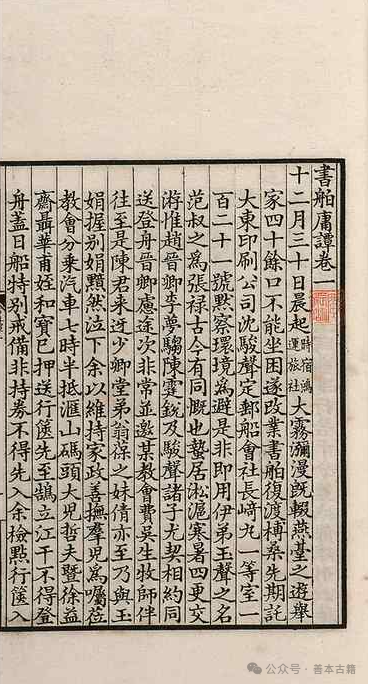 書舶庸譚卷一
十二月三十日晨起時宿鴻運旅社大霧瀰漫既輟燕臺之遊舉
家四十餘口不能坐困遂改業書舶復渡榑桑先期託
大東印刷公司沈駿聲定郵船會社長﨑丸一等室一
百二十一號默察環境爲避是非即用伊弟玉聲之名
范叔之爲張祿古今有同慨也蟄居淞滬寒暑四更交
游惟趙晉卿李夢騶陳霆銳及駿聲諸子尤契相約同
送登舟晉卿慮途次非常並邀某教會費吳生牧師伴
往至是陳君來迓少卿堂弟翁葆之妹倩亦至乃與玉
娟握别娟黯然泣下余以維持家政善撫羣兒爲囑莅
教會分乘汽車七時半抵滙山碼頭大兒哲夫暨徐益
齋聶華甫姪和寶巳押送行篋先至鵠立江干不得登
舟蓋日船特別戒備非持券不得先入余檢點行篋入
公众号·善本古籍